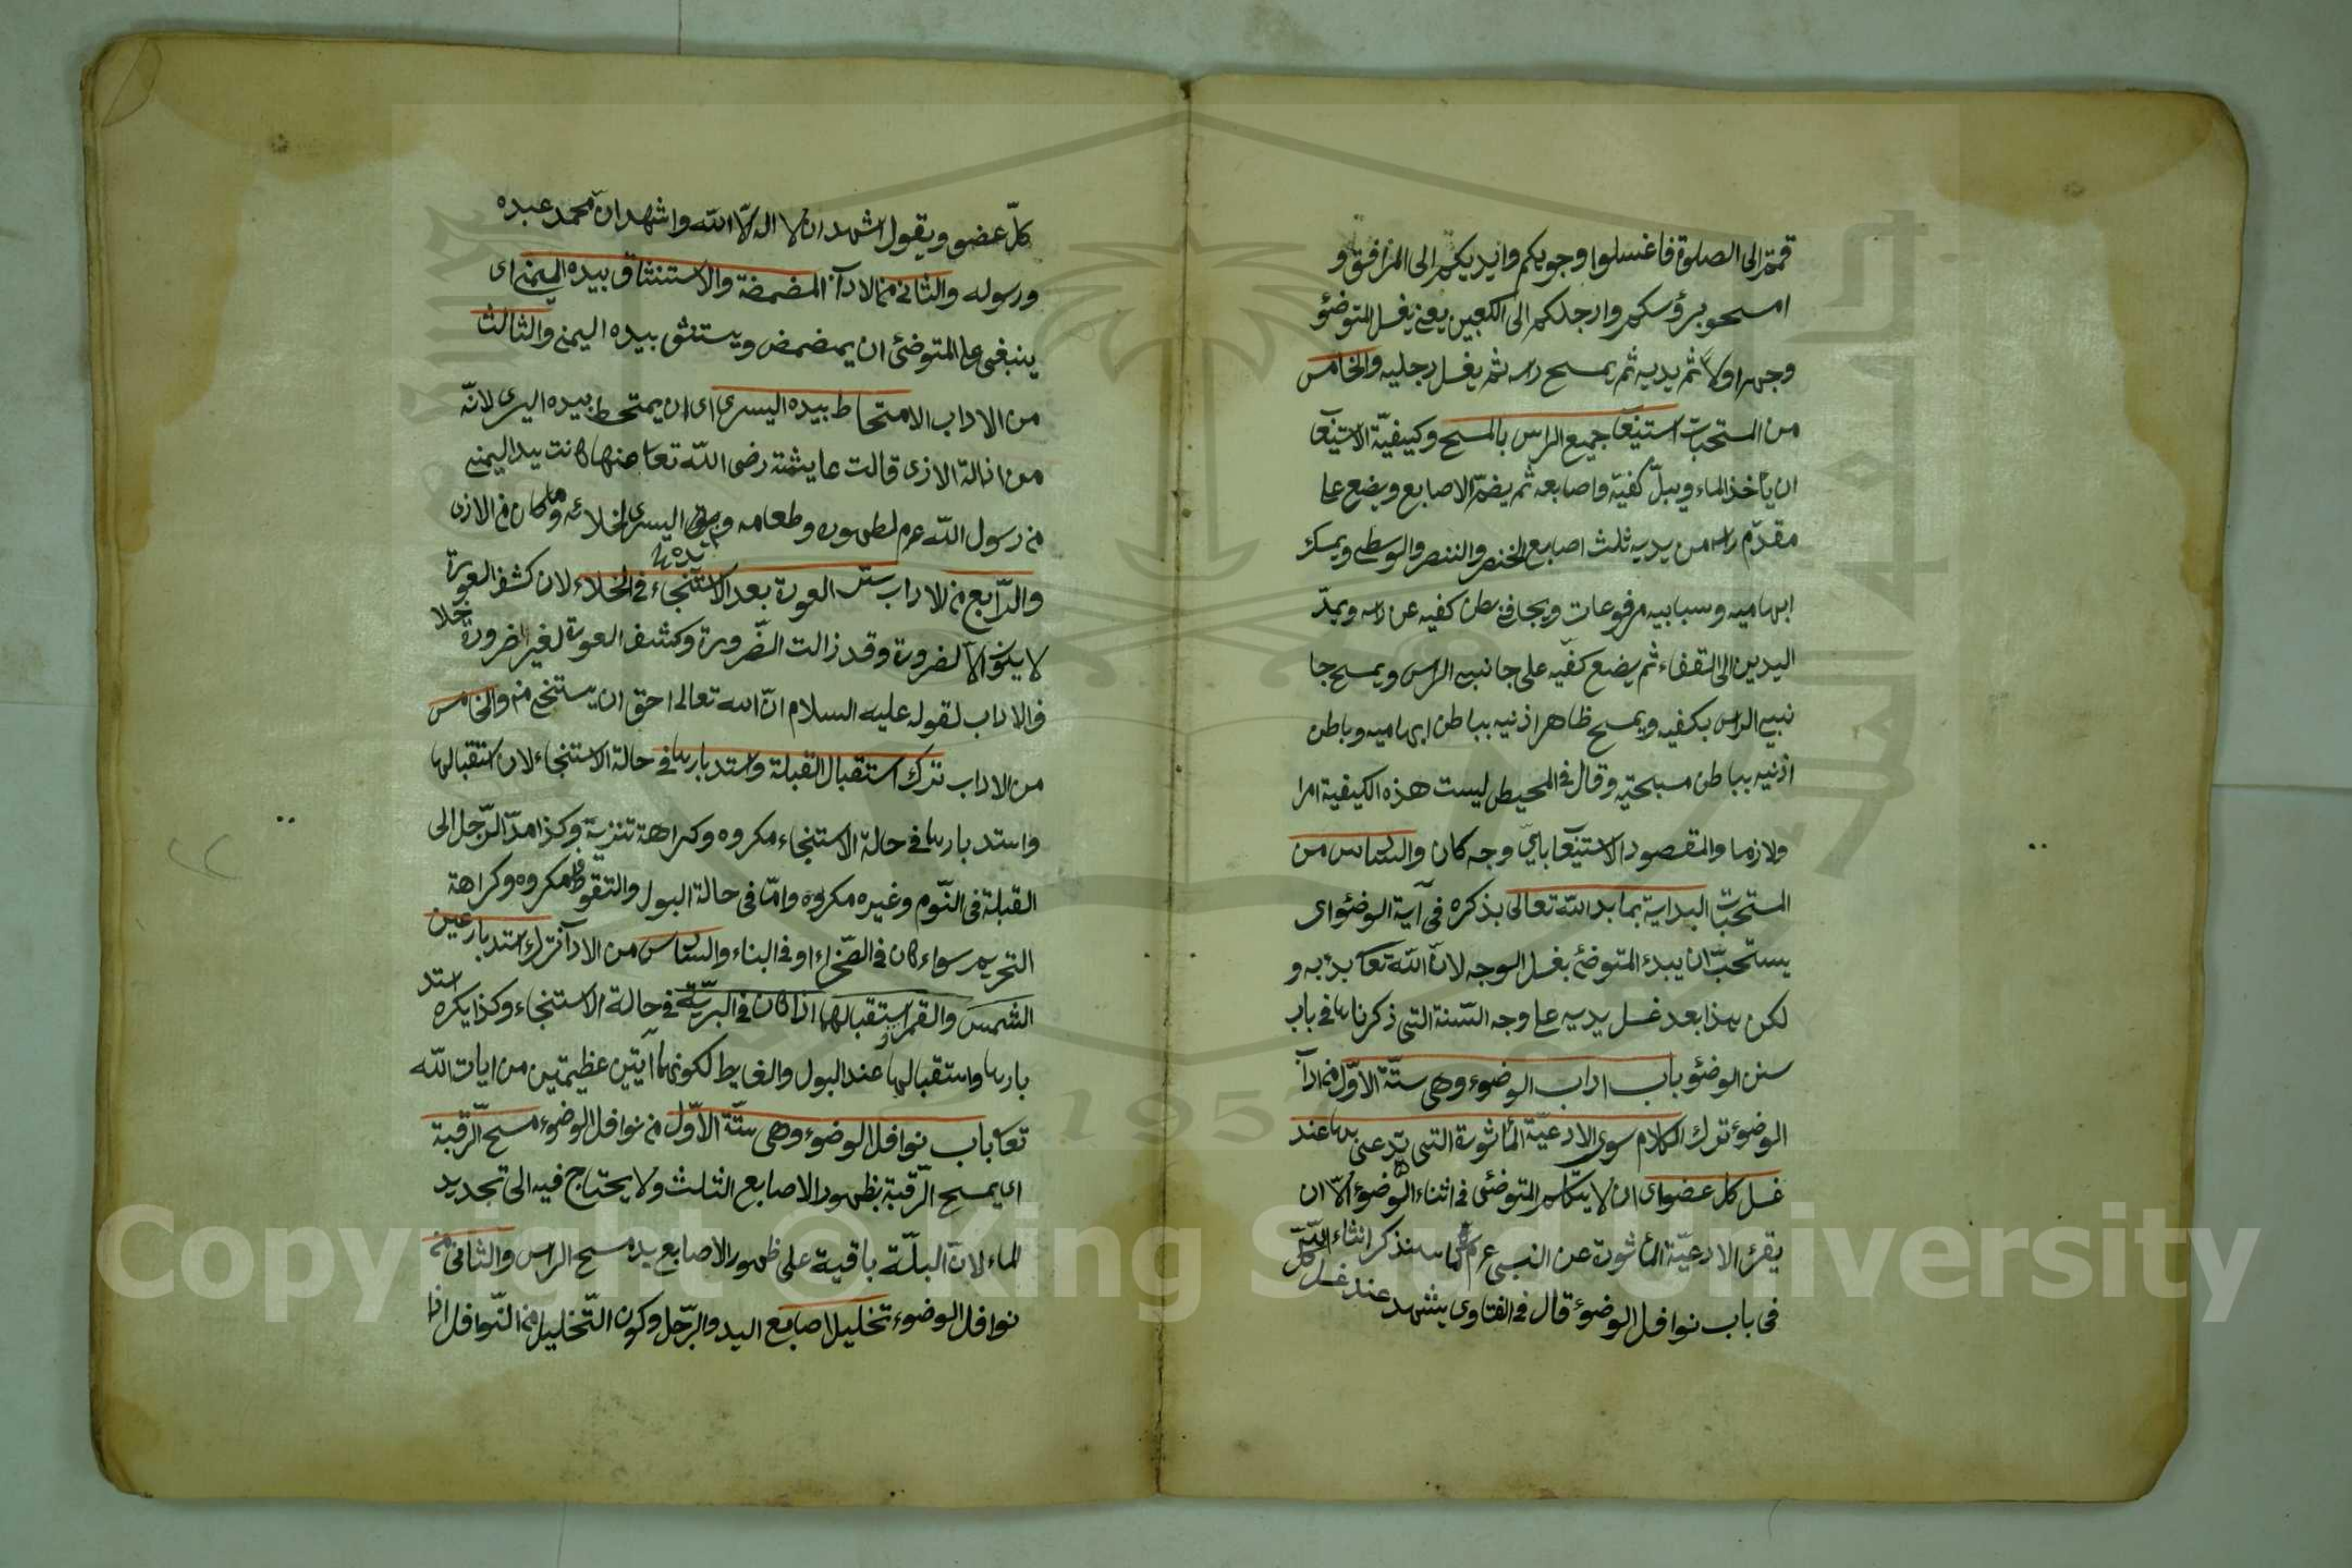 قمتم الى الصلوة فاغسلوا وجوهكم وايديكم الى المرافق و
امسحو برؤسكم وارجلكم الى الكعبين يعنى يغسل المتوضؤ
وجهه اولا ثم يديه ثم يمسح راسه ثم يغسل رجليه والخامس
من المستحبات استيعا جميع الراس بالمسح وكيفيّة الاستيعا
ان ياخذ الماء ويبلّ كفيه واصابعه ثم يضمّ الاصابع ويضع على
مقدّم راسه من يديه ثلث اصابع الخنصر والبنصر والوسطى ويمسك
ابهاميه وسبابيه مرفوعات ويجافى بطن كفيه عن راسه ويمدّ
اليدين الى القفاء ثم يضع كفّيه على جانبى الراس ويمسح جا
نبيى الراس بكفيه ويمسح ظاهر اذنيه بباطن ابهاميه وباطن
اذنيه بباطن مسبحتيه وقال فى المحيط ليست هذه الكيفية امرا
ولازما والمقصود الاستيعا باىّ وجه كان والسادس من
المستحبات البداية بما بدا الله تعالى بذكره فى آية الوضئو اى
يستحبّ ان يبدء المتوضئ بغسل الوجه لانّ الله تعا بدء به و
لكن هذا بعد غسل يديه على وجه السّنة التى ذكرناها فى باب
سنن الوضئو باب اداب الوضوء وهى ستّة الاوّل من ادآ
الوضوء ترك الكلام سوى الادعيّة المأثورة التى يدعى بها عند
غسل كل عضو اى ان لا يتكلم المتوضئ فى اثناء الوضوء الّا ان
يقرء الادعيّة المأثورة عن النبى عم كما سنذكر انشاء الله
فى باب نوافل الوضوء قال فى الفتاوى يشهد عند غسل كل
كلّ عضو ويقول اشهد ان لا اله الّا الله واشهد انّ محمد عبده
ورسوله والثانى من الادآ المضمضة والاستنثاق بيده اليمنى اى
ينبغى على المتوضئ ان يمضمض ويستنثق بيده اليمنى والثالث
من الاداب الامتحاط بيده اليسرى اى ان يمتحط بيده اليسرى لانّه
من ازالة الاذى قالت عايشة رضى الله تعا عنها كانت يد اليمنى
من رسول الله عم لطهوره وطعامه ويده اليسرى لخلائه وما كان من الاذى
والرّابع من الاداب ستر العورة بعد الاستنجاء فى الخلاء لان كشف العورة
لا يكون الّا لضرورة وقد زالت الضّرورة وكشف العورة لغير ضرورة خلا
ف الاداب لقوله عليه السلام انّ الله تعالى احق ان يستخى منه والخامس
من الاداب ترك استقبال القبلة واستدبارها فى حالة الاستنجاء لان استقبالها
واستدبارها فى حالة الاستنجاء مكروه وكراهة تنزية وكذا مدّ الرّجل الى
القبلة فى النّوم وغيره مكروه وامّا فى حالة البول والتقوّط مكروه وكراهة
التحريم سواء كان فى الصّخراء او فى البناء والسادس من الادآ ترك استدبار عين
الشمس والقمر واستقبالهما اذا كان فى البرّيّة فى حالة الاستنجاء وكذا يكره استد
بارها واستقبالها عند البول والغايط لكونهما آيتين عظيمتين من ايات الله
تعا باب نوافل الوضوء وهى ستّة الاوّل من نوافل الوضوء مسح الرّقبة
اى يمسح الرّقبة بظهور الاصابع الثلث ولا يحتاج فيه الى تجديد
الماء لانّ البلّة باقية على ظهور الاصابع بمسح الراس والثانى من
نوافل الوضوء تخليل اصابع اليد والرّجل وكون التّخليل من النّوافل اذا
Copyright © King Saud University
1957